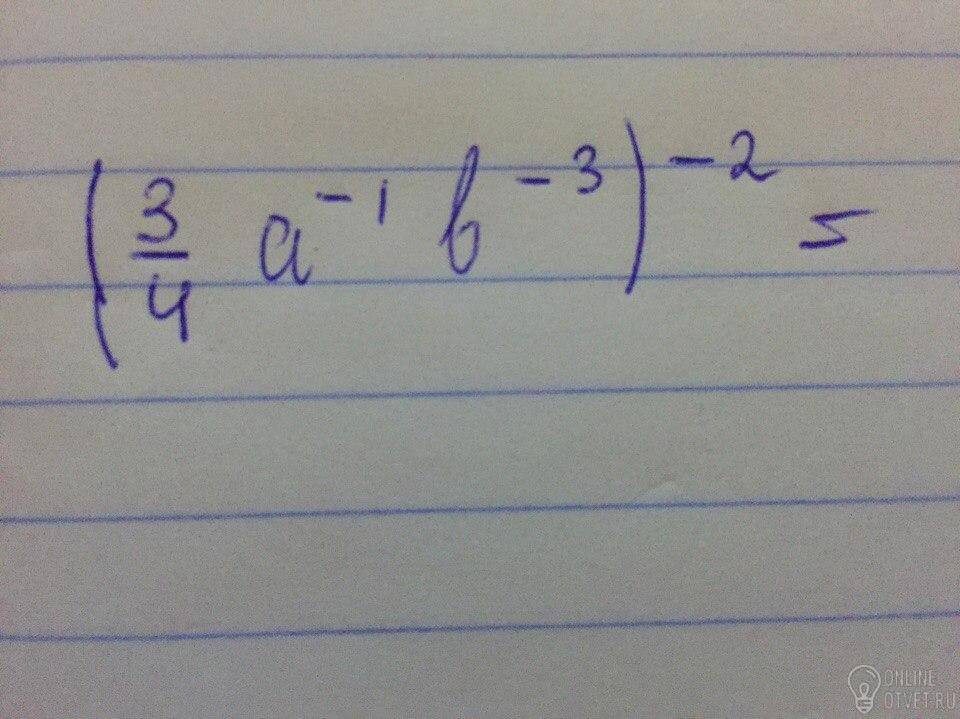 (3/4 a⁻¹ b⁻³)⁻² =
ONLINE
OTVET.RU